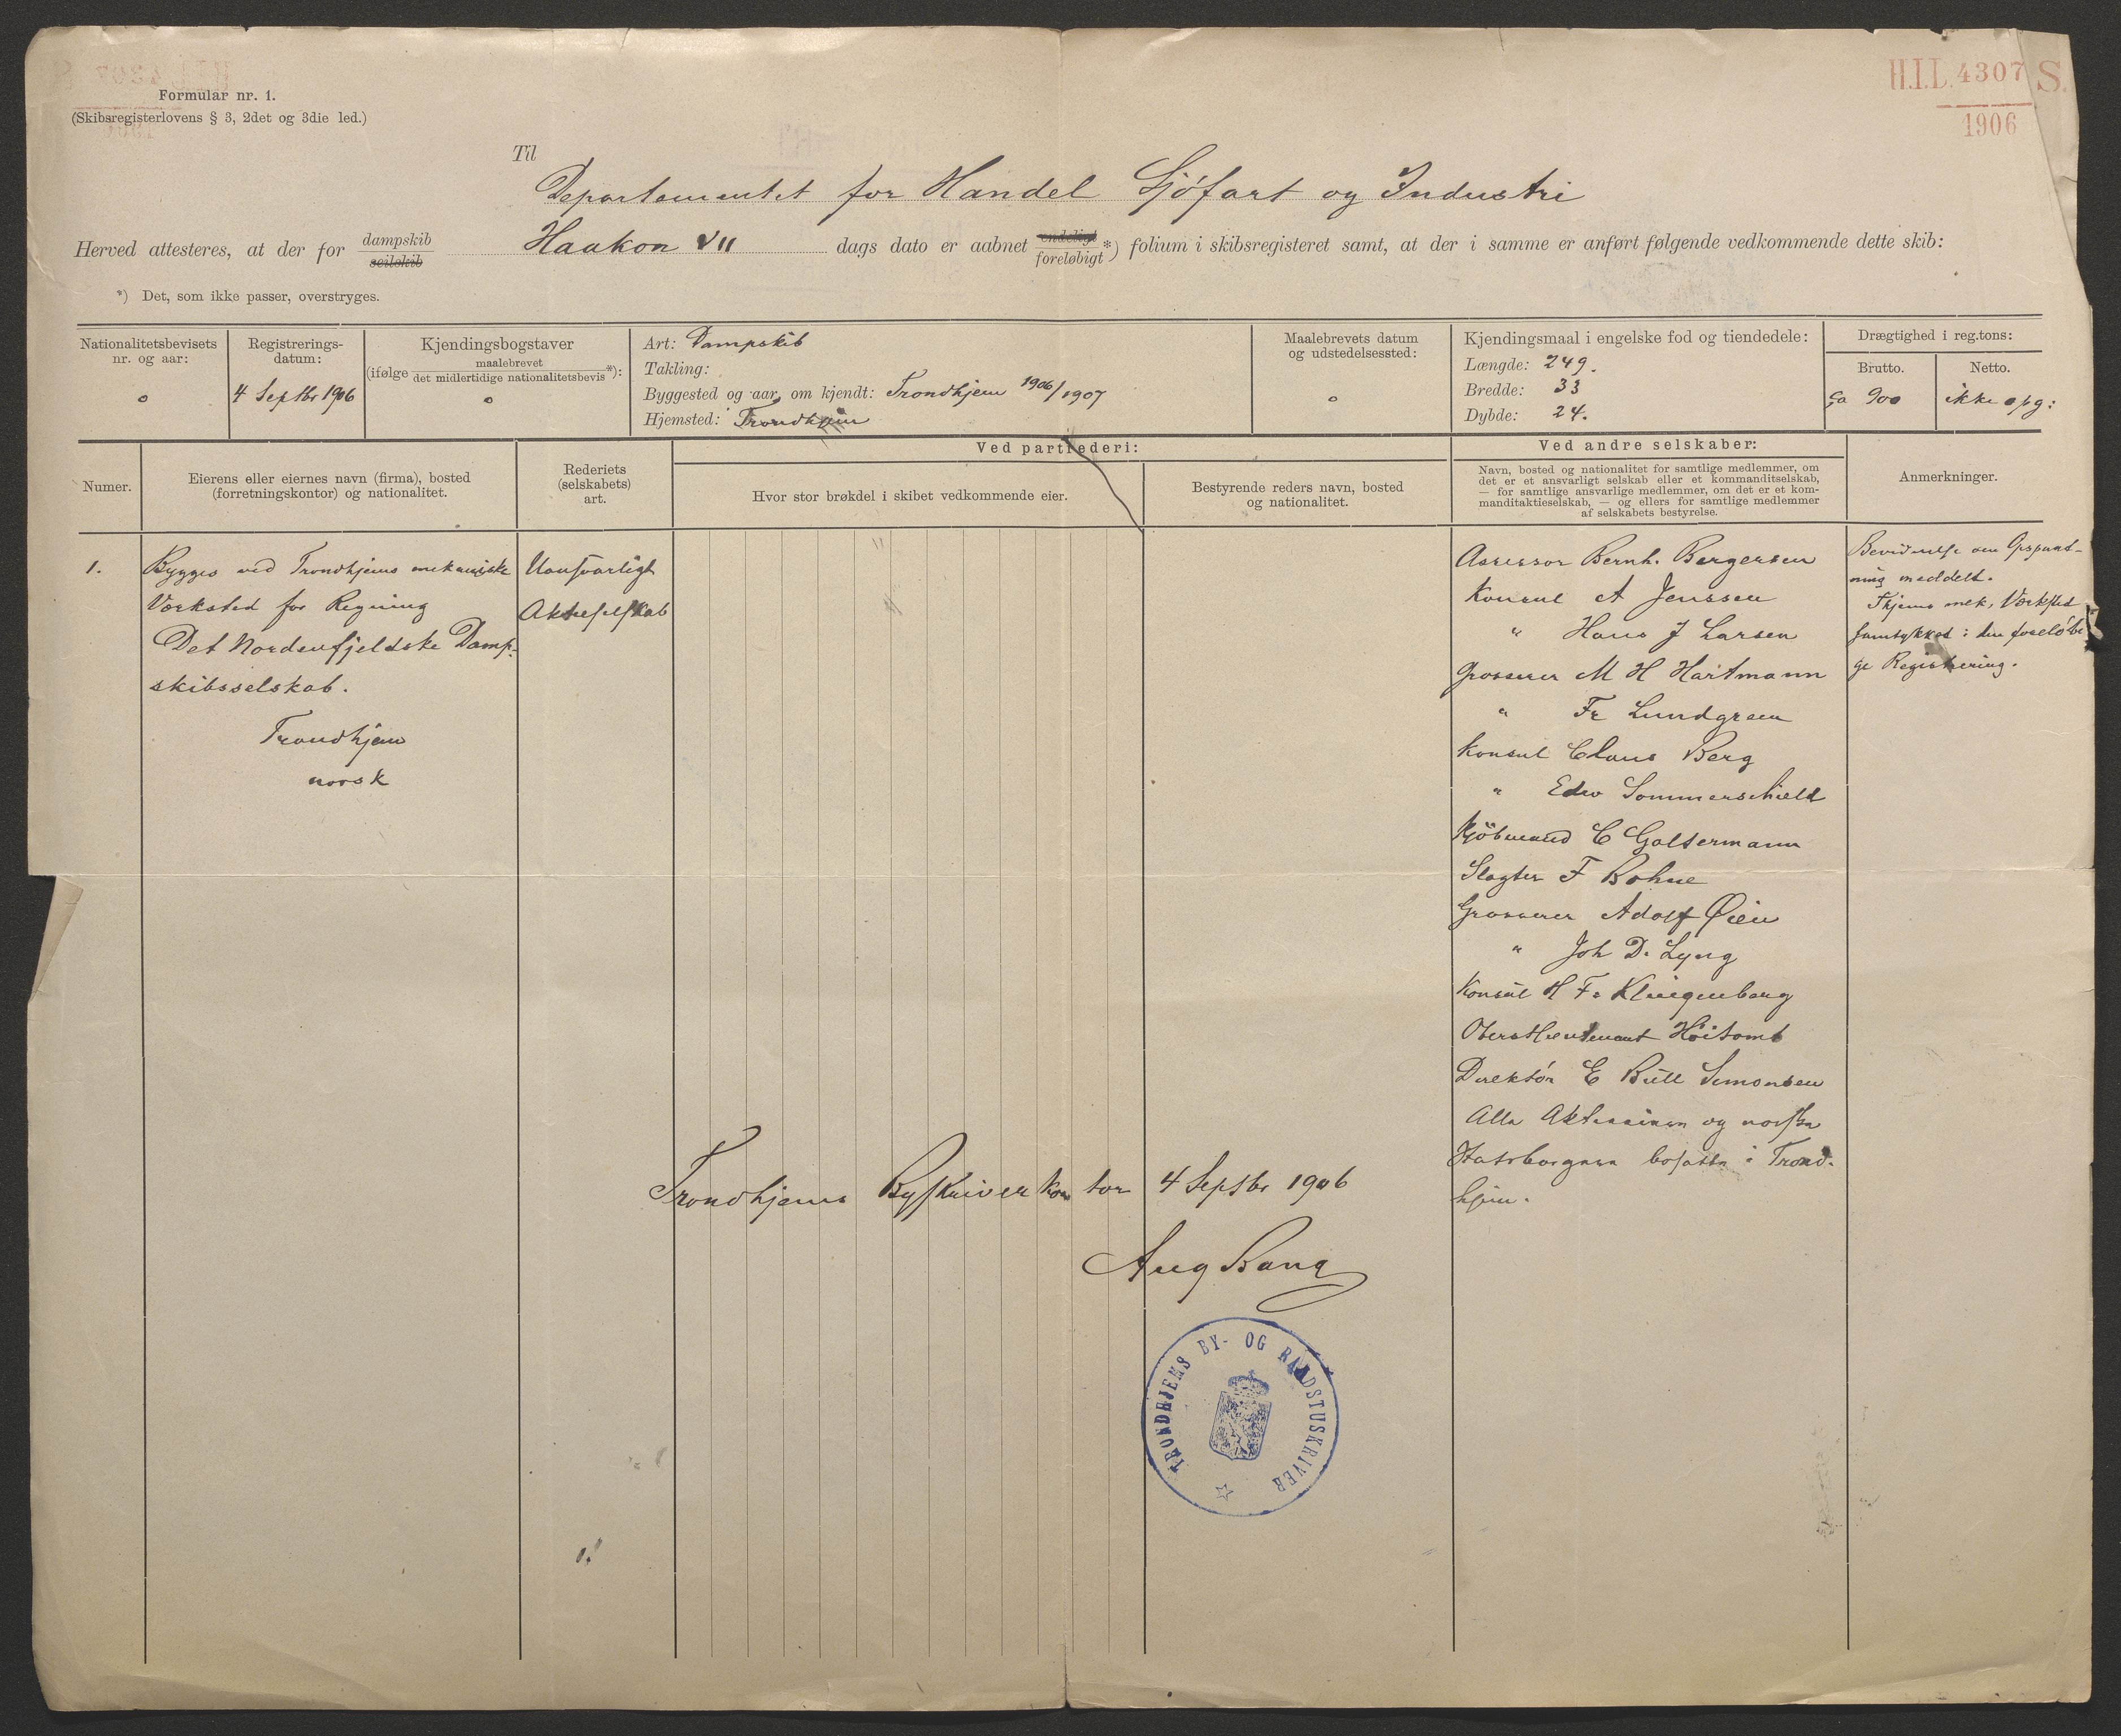 Formular nr. 1.
(Skibsregisterlovens § 3, 2det og 3die led.)
H.I.L. 4307 S.
1906
Til
Departementet for Handel Sjöfart og Industri
Herved attesteres, at der for dampskib seilskib Haakon VII dags dato er aabnet endeligt foreløbigt *) folium i skibsregisteret samt, at der i samme er anført følgende vedkommende dette skib:
*) Det, som ikke passer, overstryges.
Nationalitetsbevisets
nr. og aar:
o
Registrerings-
datum:
4 Septbr 1906
Kjendingsbogstaver
(ifølge maalebrevet
det midlertidige nationalitetsbevis *):
o
Art: Dampskib
Takling:
Byggested og aar, om kjendt: Trondhjem 1906/1907
Hjemsted: Trondhjem
Maalebrevets datum
og udstedelsessted:
o
Kjendingsmaal i engelske fod og tiendedele:
Længde: 249.
Bredde: 33
Dybde: 24.
Drægtighed i reg.tons:
Brutto.
ca 900
Netto.
ikke opg:
Numer.
Eierens eller eiernes navn (firma), bosted
(forretningskontor) og nationalitet.
Rederiets
(selskabets)
art.
Ved partrederi:
Hvor stor brøkdel i skibet vedkommende eier.
Bestyrende reders navn, bosted
og nationalitet.
Ved andre selskaber:
Navn, bosted og nationalitet for samtlige medlemmer, om
det er et ansvarligt selskab eller et kommanditselskab,
— for samtlige ansvarlige medlemmer, om det er et kom-
manditaktieselskab, — og ellers for samtlige medlemmer
af selskabets bestyrelse.
Anmerkninger.
1.
Bygges ved Trondhjems mekaniske
Værksted for Regning
Det Nordenfjeldske Damp-
skibsselskab.
Trondhjem
norsk
Uansvarligt
Aktieselskab
Assessor Bernh. Bergersen
Konsul A Jenssen
" Hans J Larsen
Grosserer M H Hartmann
" Fr Lundgreen
Konsul Claus Berg
" Edv Sommerschield
Kjöbmand C Goltermann
Slagter F Bohne
Grosserer Adolf Øien
" Joh D. Lyng
Konsul H Fr Klingenberg
Oberstlieutenant Höitomt
Direktör E Bull Simonsen
Alle Aktieeiere og norske
Statsborgere bosatte i Trond-
hjem.
Bevidnelse om Opspand-
ning meddelt.
Thjems mek. Værksted
samtykket i den foreløbi-
ge Registrering.
Trondhjems Byskriverkontor 4 Septbr 1906
Aug Bang
TRONDHJEMS BY- OG RAADSTUSKRIVER